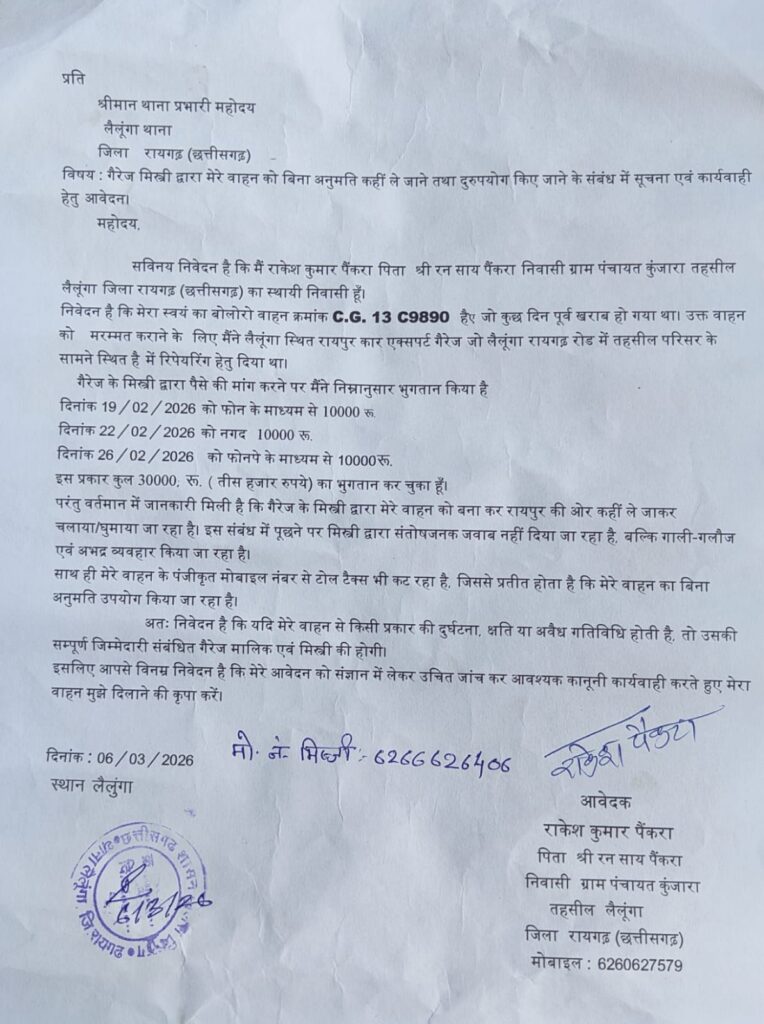 प्रति
श्रीमान थाना प्रभारी महोदय
लैलूंगा थाना
जिला रायगढ़ (छत्तीसगढ़)
विषय : गैरेज मिस्त्री द्वारा मेरे वाहन को बिना अनुमति कहीं ले जाने तथा दुरुपयोग किए जाने के संबंध में सूचना एवं कार्यवाही
हेतु आवेदन।
महोदय,
सविनय निवेदन है कि मैं राकेश कुमार पैंकरा पिता श्री रन साय पैंकरा निवासी ग्राम पंचायत कुंजारा तहसील
लैलूंगा जिला रायगढ़ (छत्तीसगढ़) का स्थायी निवासी हूँ।
निवेदन है कि मेरा स्वयं का बोलोरो वाहन क्रमांक C.G. 13 C9890 हैए जो कुछ दिन पूर्व खराब हो गया था। उक्त वाहन
को मरम्मत कराने के लिए मैंने लैलूंगा स्थित रायपुर कार एक्सपर्ट गैरेज जो लैलूंगा रायगढ़ रोड में तहसील परिसर के
सामने स्थित है में रिपेयरिंग हेतु दिया था।
गैरेज के मिस्त्री द्वारा पैसे की मांग करने पर मैंने निम्नानुसार भुगतान किया है
दिनांक 19/02/2026 को फोन के माध्यम से 10000 रू.
दिनांक 22/02/2026 को नगद 10000 रू.
दिनांक 26/02/2026 को फोनपे के माध्यम से 10000रू.
इस प्रकार कुल 30000; रू. ( तीस हजार रुपये) का भुगतान कर चुका हूँ।
परंतु वर्तमान में जानकारी मिली है कि गैरेज के मिस्त्री द्वारा मेरे वाहन को बना कर रायपुर की ओर कहीं ले जाकर
चलाया/घुमाया जा रहा है। इस संबंध में पूछने पर मिस्त्री द्वारा संतोषजनक जवाब नहीं दिया जा रहा है, बल्कि गाली-गलौज
एवं अभद्र व्यवहार किया जा रहा है।
साथ ही मेरे वाहन के पंजीकृत मोबाइल नंबर से टोल टैक्स भी कट रहा है, जिससे प्रतीत होता है कि मेरे वाहन का बिना
अनुमति उपयोग किया जा रहा है।
अतः निवेदन है कि यदि मेरे वाहन से किसी प्रकार की दुर्घटना, क्षति या अवैध गतिविधि होती है, तो उसकी
सम्पूर्ण जिम्मेदारी संबंधित गैरेज मालिक एवं मिस्त्री की होगी।
इसलिए आपसे विनम्र निवेदन है कि मेरे आवेदन को संज्ञान में लेकर उचित जांच कर आवश्यक कानूनी कार्यवाही करते हुए मेरा
वाहन मुझे दिलाने की कृपा करें।
दिनांक : 06/03/2026
मो. नं. मिस्त्री :- 6266626406
राकेश पैंकरा
स्थान लैलुंगा
आवेदक
राकेश कुमार पैंकरा
पिता श्री रन साय पैंकरा
निवासी ग्राम पंचायत कुंजारा
तहसील लैलूंगा
जिला रायगढ़ (छत्तीसगढ़)
मोबाइल : 6260627579
छत्तीसगढ़ शासन
थाना लैलूंगा, जि. रायगढ़
6/3/26